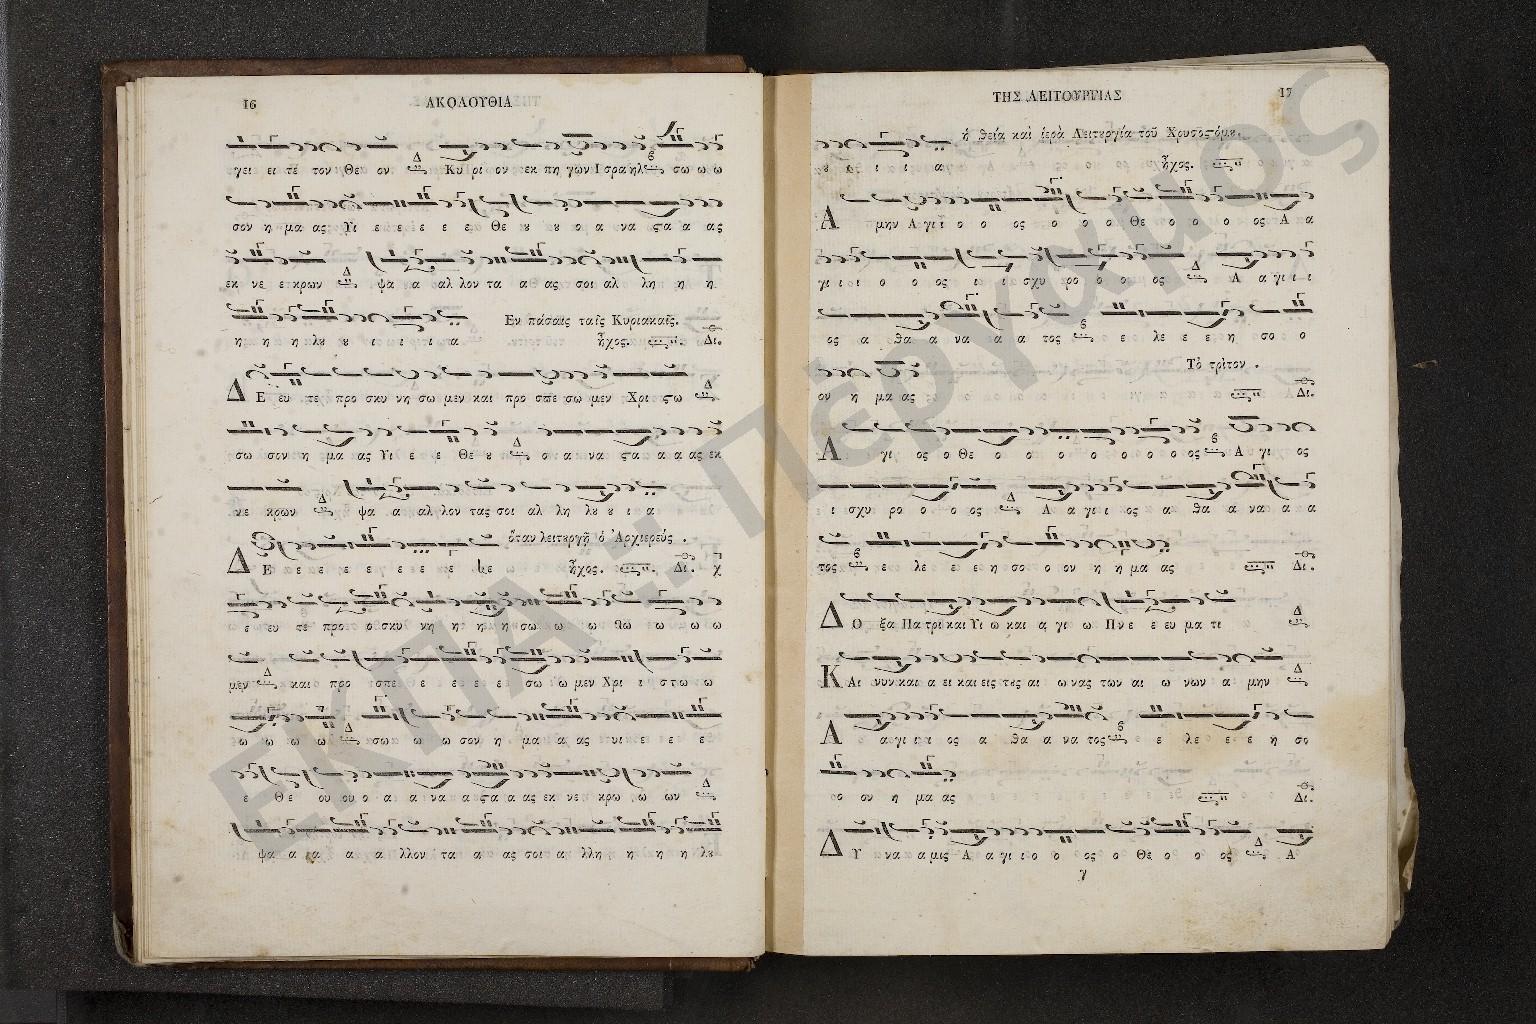 16 ΑΚΟΛΟΥΘΙΑ
γει ει τέ τον Θε ον Κυ ρι ον εκ πη γων Ι σρα ηλ σω ω ω
σον η μα ας Υι ε ε ε ε ε Θε ȣ ȣ ο α να ϛα α ας
εκ νε ε κρων ψα α αλ λον τα α ας σοι αλ λη η η
η η η λȣ ȣ ι ι ι α Εν πάσαις ταῖς Κυριακαῖς.
ἦχος. Δι.
Δ Ε ευ τε προ σκυ νη σω μεν και προ σπε σω μεν Χρι ϛω
σω σον η μα ας Υι ε ε Θε ȣ ο α να ϛα α α ας εκ
νε κρων ψα α αλ λον τας σοι αλ λη λȣ ȣ ι α
ὅταν λειτȣργῇ ὁ Ἀρχιερεύς .
Δ Ε ε ε ε ε ε ε ε ε ἦχος. Δι. χ
ε ευ τε προ ο σκυ νη η η η σω ω ω ω ω ω
μεν και προ σπε ε ε ε ε ε σω ω μεν Χρι ι στω ω
ω ω ω ω σω ω ω σον η μα α ας υι ε ε ε
ε Θε ου ου ο α α να α ϛα α ας εκ νε κρω ω ων
ψα α α α α λλον τα α ας σοι α λλη η η η λȣ
ΤΗΣ ΛΕΙΤΟΥΡΓΙΑΣ 17
ἡ θεία καὶ ἱερὰ Λειτȣργία τοῦ Χρυσοϛόμȣ.
ȣ ȣ ι ι α ἦχος.
Α μην Α γι ι ο ο ος ο ο ο Θε ο ο ο ος Α α
γι ι ι ο ο ος ι ι σχυ ρο ο ο ος Α α γι ι ι
ος α θα α να α α τος ε ε λε ε ε η σο ο
ον η μα ας Τὸ τρίτον .
Δι.
Α γι ος ο Θε ο ο ο ο ο ο ο ος Α γι ος
ι σχυ ρο ο ο ος Α α γι ι ος α θα ά να α α
τος ε λε ε ε η σο ο ον η η μα ας Δι.
Δ Ο ξα Πα τρι και Υι ω και α γι ω Πνε ε ευ μα τι
Κ Αι νυν και α ει και εις τȣς αι ω νας των αι ω νων α μην
Α α γι ι ος α θα α να τος ε ε λε ε ε η σο
ο ον η μα ας Δι.
Δ Υ να α α μις Α α γι ι ο ο ος ο Θε ο ο ος Α
γ
ΕΚΠΑ - Πέργαμος